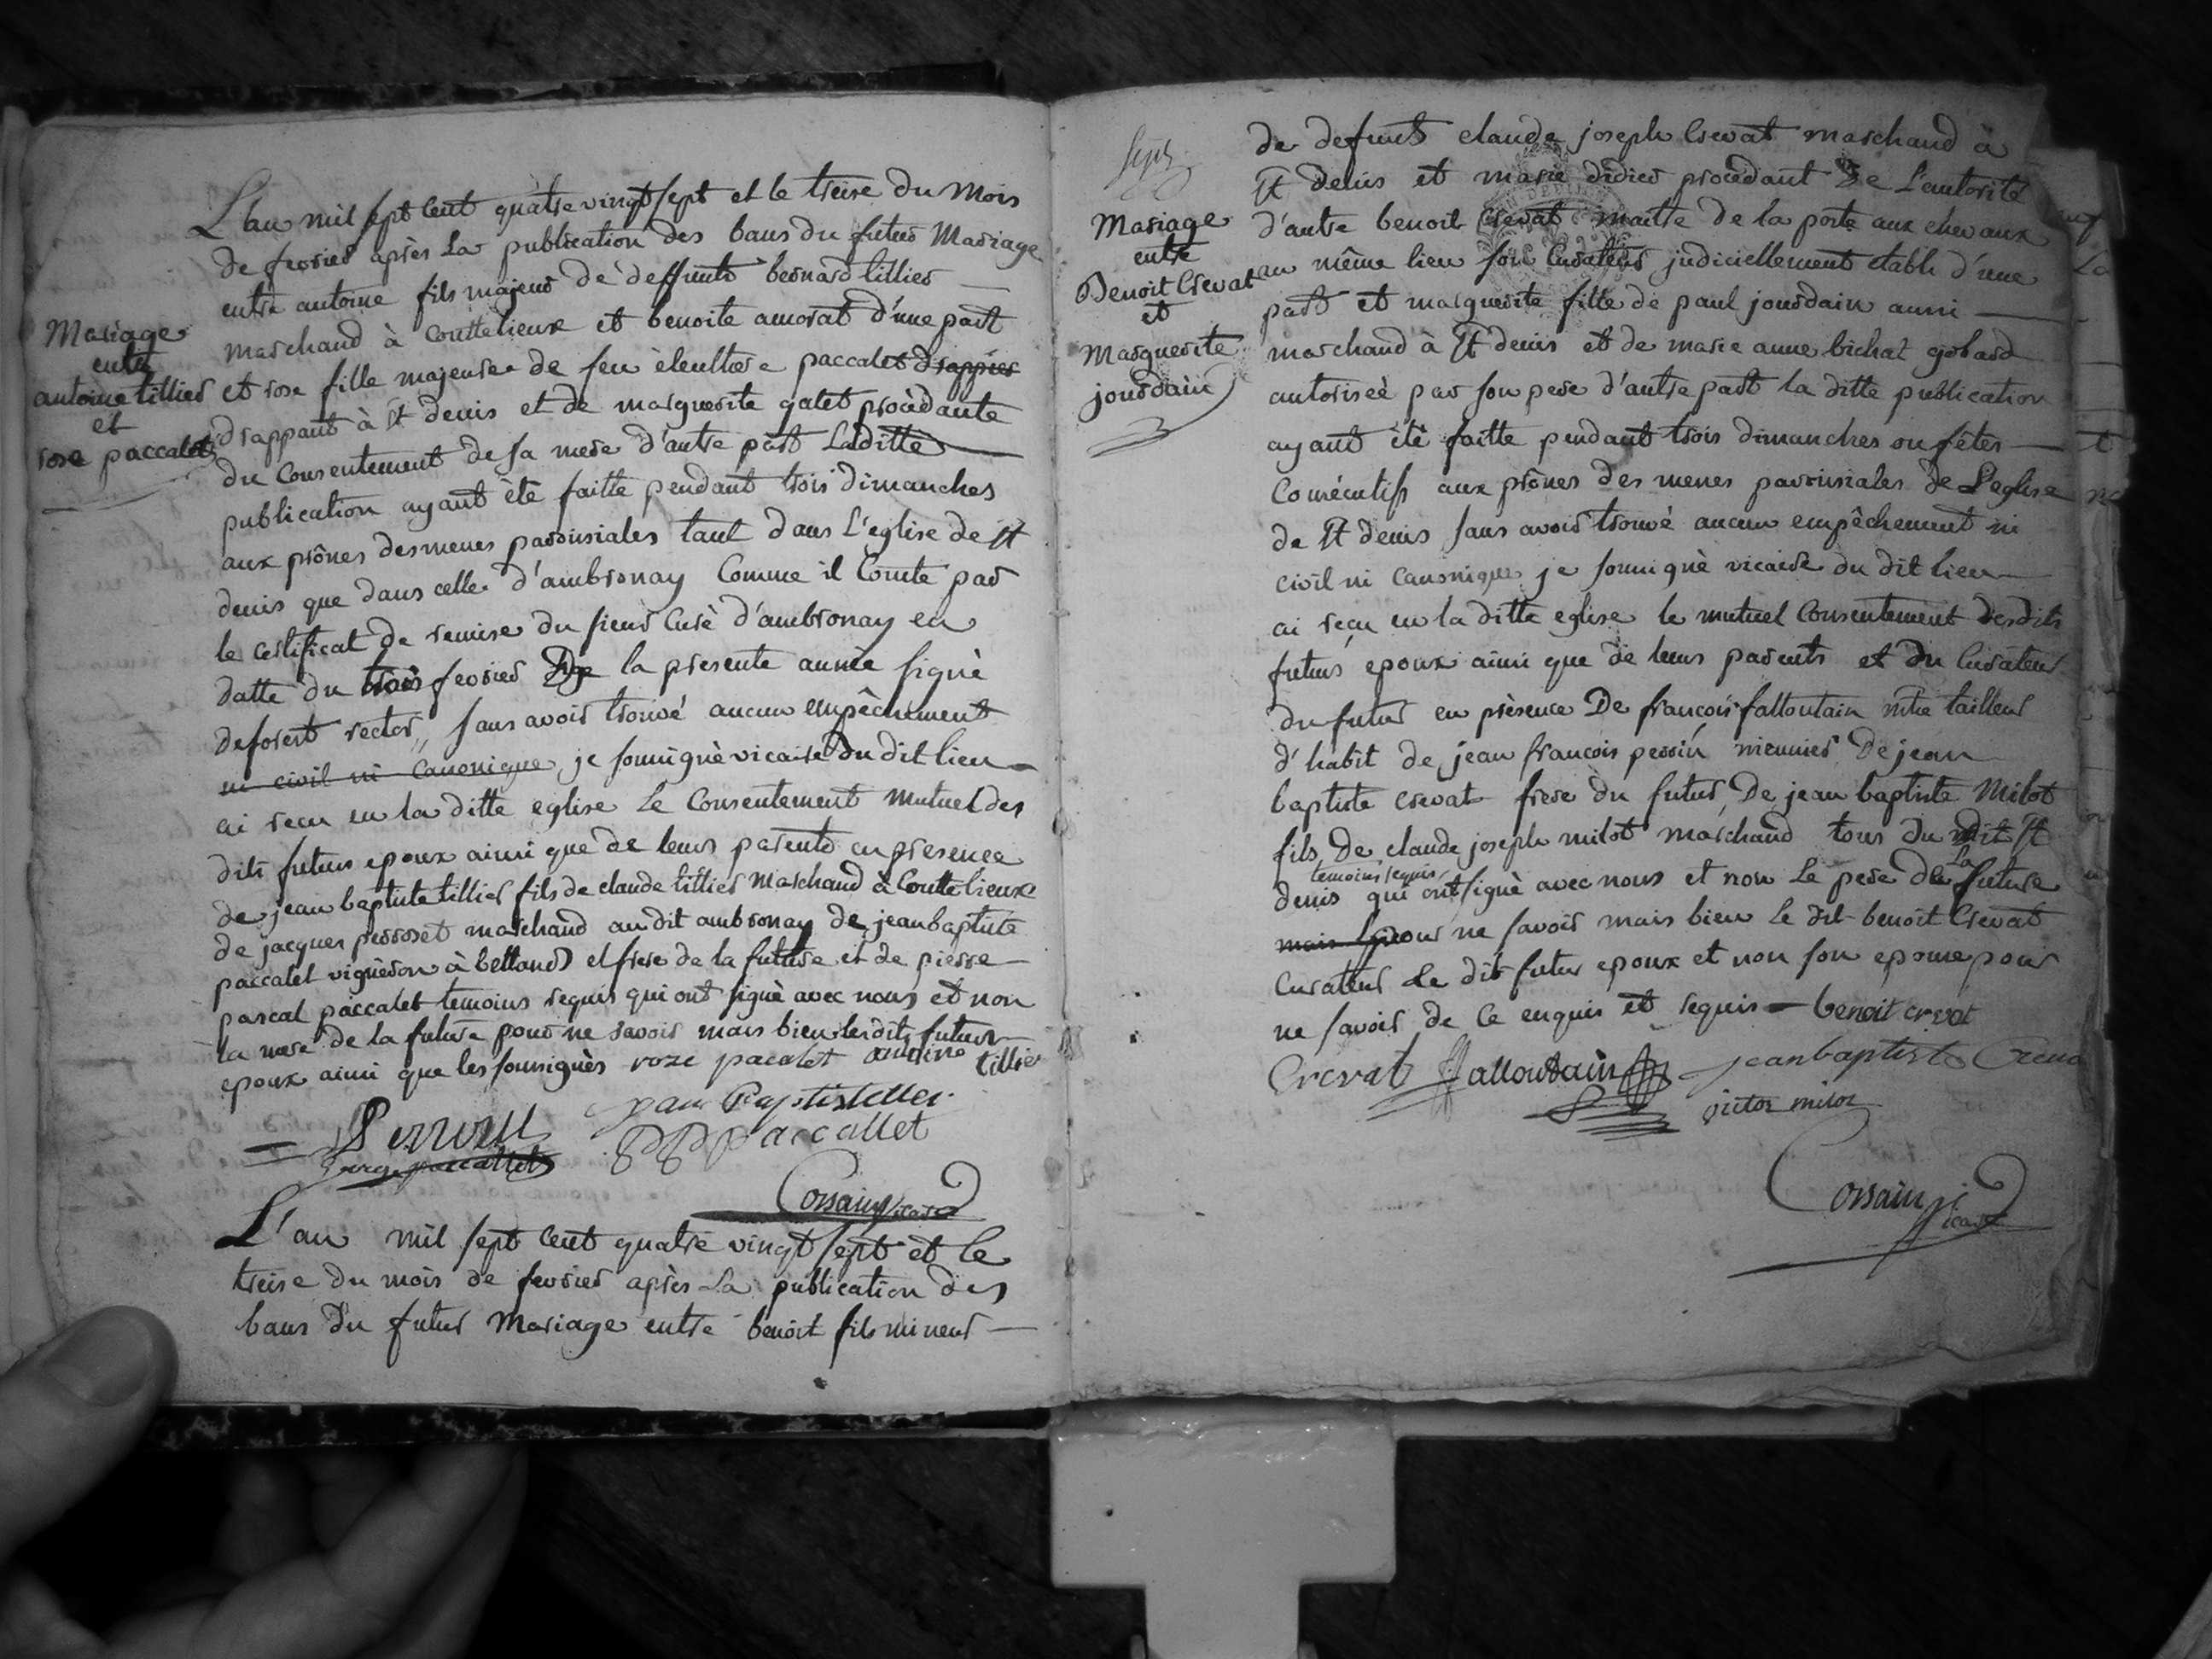 Mariage
entre
antoine tillier
et
rose paccalet
L'an mil sept cent quatre vingt sept et le treise du mois
de fevrier après la publication des bans du futur Mariage
entre antoine fils majeur de deffunts bernard tillier
marchand à Couttelieux et benoite amorat d'une part
et rose fille majeure de feu èleulthere paccalet drappier
drappant à st denis et de marguerite galet procèdante
du Consentement de sa mere d'autre part Laditte
publication ayant été faitte pendant trois dimanches
aux prônes des messes paroissiales tant dans L'eglise de st
denis que dans celle d'ambronay Comme il Conste par
le certificat de remise du sieur Curé d'ambronay en
datte du trois fevrier De la presente année signé
deforest rector, sans avoir trouvé aucun empèchement
ni civil ni Canonique, je soussigné vicaire du dit lieu
ai recu en la ditte eglise Le Consentement Mutuel des
dits futurs epoux ainsi que de leurs parents en presence
de jean baptiste tillier fils de claude tillier Marchand à Couttelieux
de jacques perroset marchand au dit ambronay de jean baptiste
paccalet vigneron à bettand et frere de la future et de pierre
pascal paccalet temoins requis qui ont signé avec nous et non
la mere de la future pour ne savoir mais bien lesdits futurs
epoux ainsi que les soussignès roze pacalet antoine tillier
jean Baptiste tillier
Paccallet
paccallet
Corsain vicaire
L'an mil sept cent quatre vingt sept et le
treise du mois de fevrier après La publication des
bans du futur Mariage entre benoit fils mineur
Mariage
entre
Benoit Crevat
et
Marguerite
jourdain
de defunts claude joseph Crevat marchand à
st denis et marie didier procèdant De L'autorité
d'autre benoit Crevat maitre de la poste aux chevaux
au même lieu son Curateur judiciellement etabli d'une
part et marguerite fille de paul jourdain aussi
marchand à st denis et de marie anne bichat gobard
autoriseé par son pere d'autre part la ditte publication
ayant été faitte pendant trois dimanches ou fêtes
Consécutifs aux prônes des messes parroissiales de L'eglise
de st denis sans avoir trouvé aucun empêchement ni
civil ni canonique je soussigné vicaire du dit lieu
ai recu en la ditte eglise le mutuel Consentement desdits
futurs epoux ainsi que de leurs parents et du Curateur
du futur en présence De francois falloutain mtre tailleur
d'habit de jean francois perrin meunier De jean
baptiste crevat frere du futur, De jean baptiste Milot
fils De claude joseph milot marchand tous du dit st
temoins requis La
denis qui ont signé avec nous et non Le pere de future
mais pour ne savoir mais bien le dit benoit Crevat
curateur le dit futur epoux et non son epouse pour
ne savoir de ce enquis et requis benoit crevat
Crevat falloutain jean baptiste Creva
victor milot
Corsain vicaire